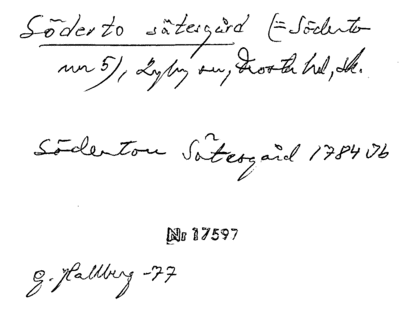 Söderto sätesgård (= Söderto
nr 5), Lyhy sn, Frosta hd, sk.
Södertou Sãtesgård 1784 Jb
Nr 17597
G. Hallberg -77